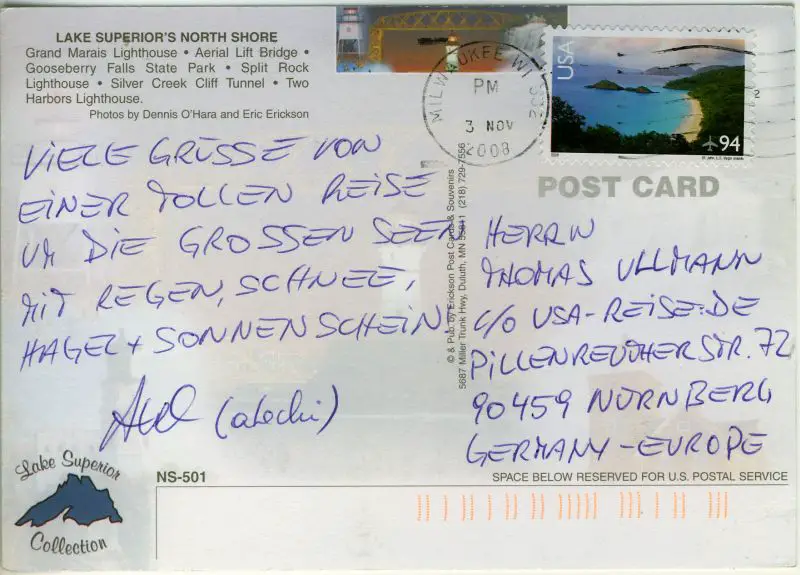 LAKE SUPERIOR'S NORTH SHORE
Grand Marais Lighthouse • Aerial Lift Bridge •
Gooseberry Falls State Park • Split Rock
Lighthouse • Silver Creek Cliff Tunnel • Two
Harbors Lighthouse.
Photos by Dennis O'Hara and Eric Erickson
MILWAUKEE WI
PM
3 NOV
2008
USA
94
POST CARD
VIELE GRÜSSE VON
EINER TOLLEN REISE
UM DIE GROSSEN SEEN
MIT REGEN, SCHNEE,
HAGEL + SONNENSCHEIN
© & Pub. by Erickson Post Cards & Souvenirs
5687 Miller Trunk Hwy, Duluth, MN 55811 (218) 729-7556
HERRN
THOMAS ULLMANN
C/O USA-REISE.DE
PILLENREUTHER STR. 72
90459 NÜRNBERG
GERMANY - EUROPE
Lake Superior
Collection
NS-501
SPACE BELOW RESERVED FOR U.S. POSTAL SERVICE